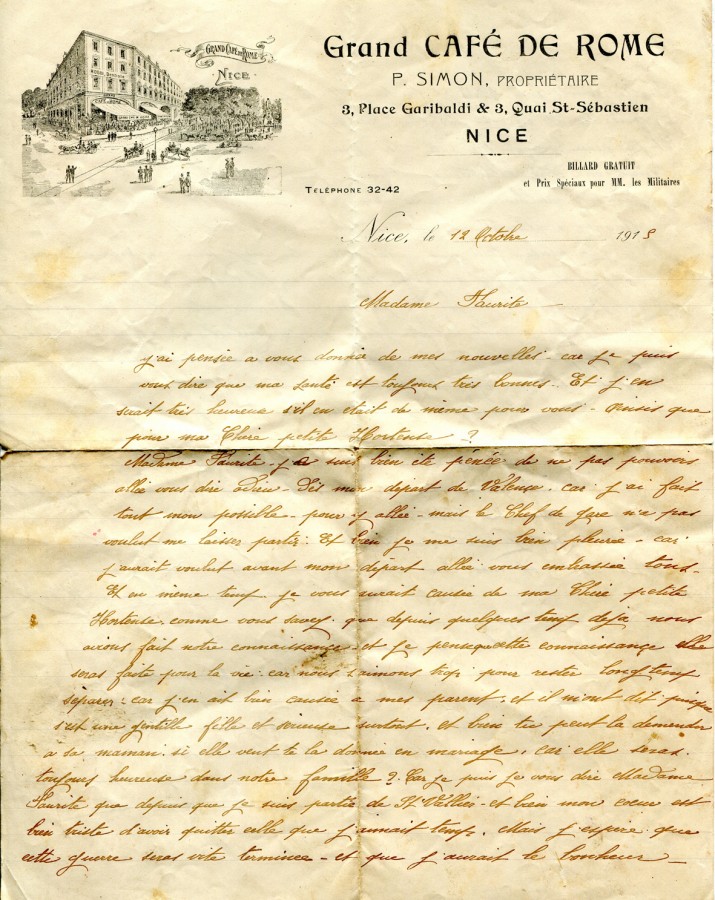 GRAND CAFÉ DE ROME
NICE
Grand CAFÉ DE ROME
P. SIMON, PROPRIÉTAIRE
3, Place Garibaldi & 3, Quai St-Sébastien
NICE
BILLARD GRATUIT
et Prix Spéciaux pour MM. les Militaires
TÉLÉPHONE 32-42
Nice, le 12 Octobre 1915
Madame Faurite
j'ai pensée a vous donnée de mes nouvelles. car je puis
vous dire que ma santé est toujours très bonnes. Et j'en
serait très heureux s'il en était de même pour vous. Ainsis que
pour ma Chère petite Hortense ?
Madame Faurite. j'ai bien été pénée de ne pas pouvoirs
allée vous dire Adieu. Dès mon départ de Valence. car j'ai fait
tout mon possible. pour y allée. mais le Chef de gare n'a pas
voulut me laisser partir. Et bien je me suis bien pleurée. car
j'aurait voulut avant mon départ allée vous embrassée tous.
Et en même temp. je vous aurait causée de ma Chère petite
Hortense. comme vous savez. que depuis quelques temp déjà nous
avions fait notre connaissance. et je pense que cette connaissance elle
seras faite pour la vie. car nous s'aimons trop pour rester longtemp
séparer. car j'en ait bien causée a mes parent. et il m'ont dit puisque
s'est une gentille fille et sérieuse surtout. et bien tu peut la demander
à sa maman. si elle veut te la donnée en mariage. car elle seras
toujours heureuse dans notre famille ? Car je puis je vous dire Madame
Faurite que depuis que je suis partie de St Vallier. et bien mon cœur est
bien triste d'avoir quitter celle que j'aimait temp. Mais j'espère que
cette guerre seras vite terminée. et que j'aurait le bonheur